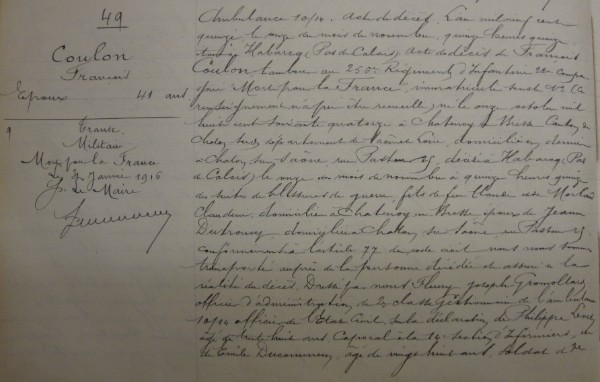 49
Coulon
François
Epoux 41 ans
9
Transc
Militaire
Mort pour la France
Le 7 Janvier 1916
Le Maire
Ambulance 10/14. Acte de décès. L'an mil neuf cent
quinze le onze du mois de novembre, quinze heures quinze
Habarcq (Pas de Calais) Acte de décès de François
Coulon au 250e Régiment d'Infanterie 22e Compa
gnie Mort pour la France, immatriculé sous le No Ce
renseignement n'a pu être recueilli, né le onze octobre mil
huit cent soixante quatorze à Chatenoy en Bresse Canton de
Chalon sur département de Saône et Loire, domicilié en dernier
à Chalon sur Saone rue Pasteur 25, décédé à Habarcq Pas
de Calais le onze du mois de novembre à quinze heures quinze
des suites de blessures de guerre, fils de feu Claude et de
Claudine, domiciliée à Chatenoy en Bresse époux de Jeanne
domiciliée à Chalon sur Saone, rue Pasteur 25
conformément à l'article 77 du code civil nous nous sommes
transporté auprès de la personne décédée et assuré de la
réalité du décès. Dressé par nous Fleury Joseph
officier d'administration de 2e classe gestionnaire de l'ambulance
10/14 officier de l'Etat Civil, sur la déclaration de Philippe
âgé de trente huit ans Caporal à la section d'Infirmiers, et
de Emile âgé de vingt huit ans, soldat